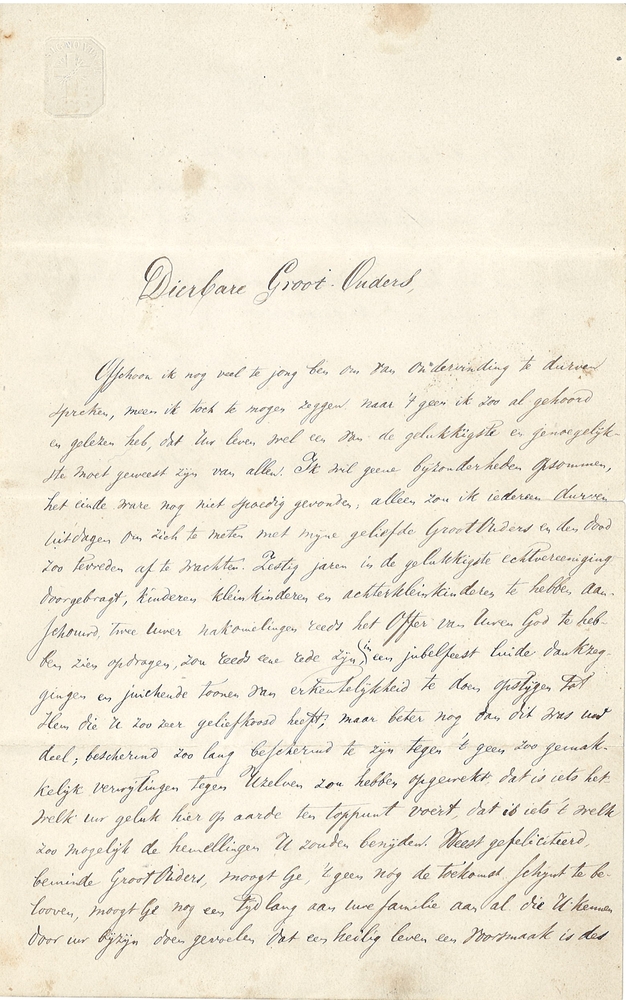 Dierbare Groot-Ouders,
Offschoon ik nog veel te jong ben om van ondervinding te durven
spreken, meen ik toch te mogen zeggen naar 't geen ik zoo al gehoord
en gelezen heb, dat Uw leven wel een van de gelukkigste en genoegelijk-
ste moet geweest zijn van allen. Ik wil geene bijzonderheden opsommen,
het einde ware nog niet spoedig gevonden, alleen zou ik iedereen durven
uitdagen om zich te meten met mijne geliefde GrootOuders en den dood
zoo tevreden af te wachten. Zestig jaren in de gelukkigste echtvereeniging
doorgebragt, kinderen kleinkinderen en achterkleinkinderen te hebben aan-
schouwd, twee Uwer nakomelingen reeds het Offer van Uwen God te heb-
ben zien opdragen, zou reeds eene rede zijn in een jubelfeest luide dankzeg-
gingen en juichende toonen van erkentelijkheid te doen opstijgen tot
Hem die U zoo zeer geliefkoosd heeft, maar beter nog dan dit was uw
deel; beschermd zoo lang beschermd te zijn tegen 't geen zoo gemak-
kelijk verwijtingen tegen Uzelven zou hebben opgewekt, dat is iets het
welk uw geluk hier op aarde ten toppunt voert, dat is iets 't welk
zoo mogelijk de hemellingen U zouden benijden. Weest gefeliciteerd,
beminde GrootOuders, moogt Ge, 't geen nog de toekomst schijnt te be-
looven, moogt Ge nog een tijd lang aan uwe familie aan al die U kennen
door uw bijzijn doen gevoelen dat een heilig leven een voorsmaak is des